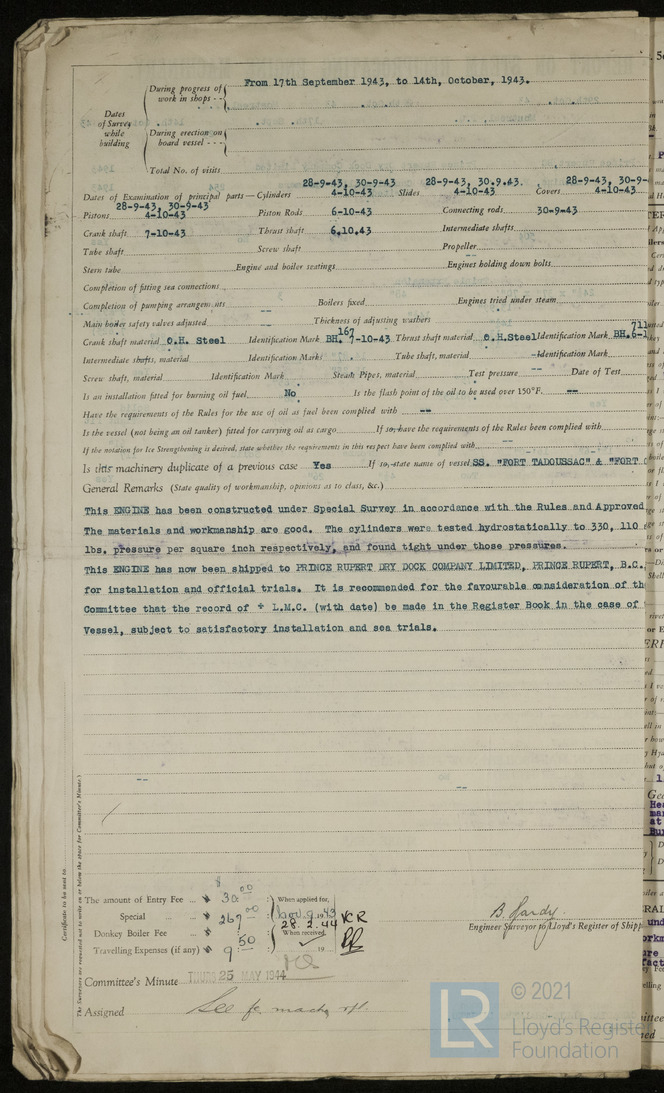 During progress of work in shops - - From 17th September 1943, to 14th, October, 1943.
Dates of Survey while building
During erection on board vessel - - -
Total No. of visits
28-9-43, 30-9-43 28-9-43, 30.9.43. 28-9-43, 30-9-
Dates of Examination of principal parts—Cylinders 4-10-43 Slides 4-10-43 Covers 4-10-43
28-9-43, 30-9-43
Pistons 4-10-43 Piston Rods 6-10-43 Connecting rods 30-9-43
Crank shaft 7-10-43 Thrust shaft 6.10.43 Intermediate shafts
Tube shaft Screw shaft Propeller
Stern tube Engine and boiler seatings Engines holding down bolts
Completion of fitting sea connections
Completion of pumping arrangements -- Boilers fixed Engines tried under steam
Main boiler safety valves adjusted -- Thickness of adjusting washers
Crank shaft material O.H. Steel Identification Mark BH. 167 7-10-43 Thrust shaft material O.H.Steel Identification Mark BH. 711 6-1
Intermediate shafts, material Identification Marks Tube shaft, material Identification Mark
Screw shaft, material Identification Mark Steam Pipes, material Test pressure -- Date of Test
Is an installation fitted for burning oil fuel No Is the flash point of the oil to be used over 150°F. --
Have the requirements of the Rules for the use of oil as fuel been complied with --
Is the vessel (not being an oil tanker) fitted for carrying oil as cargo If so, have the requirements of the Rules been complied with
If the notation for Ice Strengthening is desired, state whether the requirements in this respect have been complied with --
Is this machinery duplicate of a previous case Yes If so, state name of vessel SS. "FORT TADOUSSAC" & "FORT
General Remarks (State quality of workmanship, opinions as to class, &c.)
This ENGINE has been constructed under Special Survey in accordance with the Rules and Approved
The materials and workmanship are good. The cylinders were tested hydrostatically to 330, 110
lbs. pressure per square inch respectively, and found tight under those pressures.
This ENGINE has now been shipped to PRINCE RUPERT DRY DOCK COMPANY LIMITED, PRINCE RUPERT, B.C.
for installation and official trials. It is recommended for the favourable consideration of th
Committee that the record of + L.M.C. (with date) be made in the Register Book in the case of
Vessel, subject to satisfactory installation and sea trials.
--
--
Certificate to be sent to
The Surveyors are requested not to write on or below the space for Committee's Minute.
The amount of Entry Fee ... $ 30.00 : When applied for,
Special ... $ 267.00 : Nov. 9 1943 VCR
Donkey Boiler Fee ... 28.2.44
When received,
Travelling Expenses (if any) $ 9.50 : 19
B. Hardy.
Engineer Surveyor to Lloyd's Register of Shipp
Committee's Minute THURS 25 MAY 1944
Assigned See fe. machy rpt.
LR © 2021
Lloyd's Register
Foundation